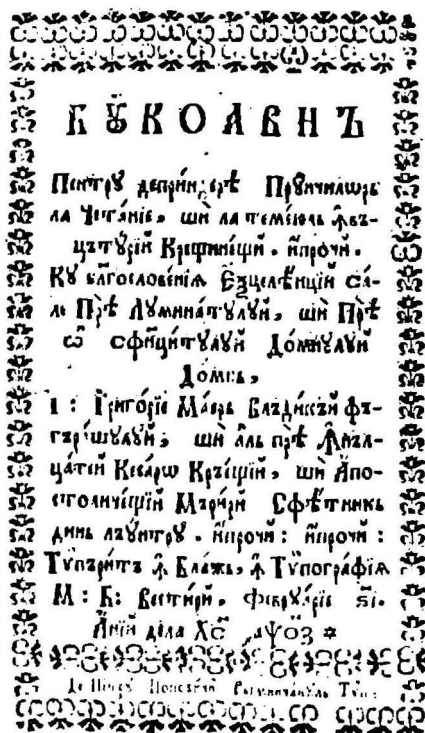 БꙊКОАВНЪ
Пентрꙋ деприндерѣ Прꙋнчилѡръ
ла Четанїе, ши ла темеюль Ꙟвъ-
цътꙋрїй Крещинещи. ипрочи.
Кꙋ блгословенїѧ Еѯцеленцїй са-
ле Прѣ Лꙋминатꙋлꙋй, шѝ Прѣ
ѡ сфинцитꙋлꙋй Домнꙋлꙋй
Домнь,
І: Григорїе Маерь Владикъй фъ-
гърѫшꙋлꙋй, шѝ аль прѣ Ꙟнъл-
цатей Кесаро Кръещїй, шѝ Апо-
столичещїй Мърири Сфѣтникь
динь лъꙋнтрꙋ. ипрочи: ипрочи:
Тѵпъритъ ꙟ Блажь, ꙟ Тѵпографїѧ
М: Б: Вестири, Феврꙋарїе в҃і.
Аний дела Хс҃ ҂аѱо҃з
Де Петрꙋ Тѵп: